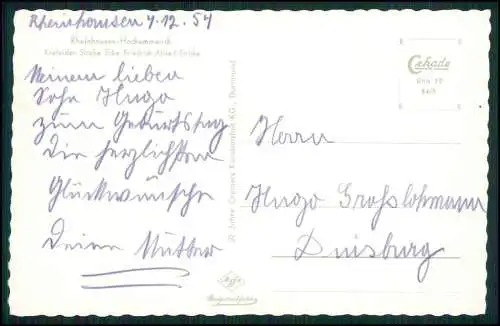 Rheinhausen 4.12.54
Rheinhausen-Hochemmerich
Krefelder Straße Ecke Friedrich-Alfred-Straße
Meinem lieben
Sohn Hugo
zum Geburtstag
Die herzlichsten
Glückwünsche
Deine Mutter
Cekade
Rhn 19
Herrn
Hugo Großlohmann
Duisburg
Cramers Kunstanstalt KG., Dortmund
Agfa